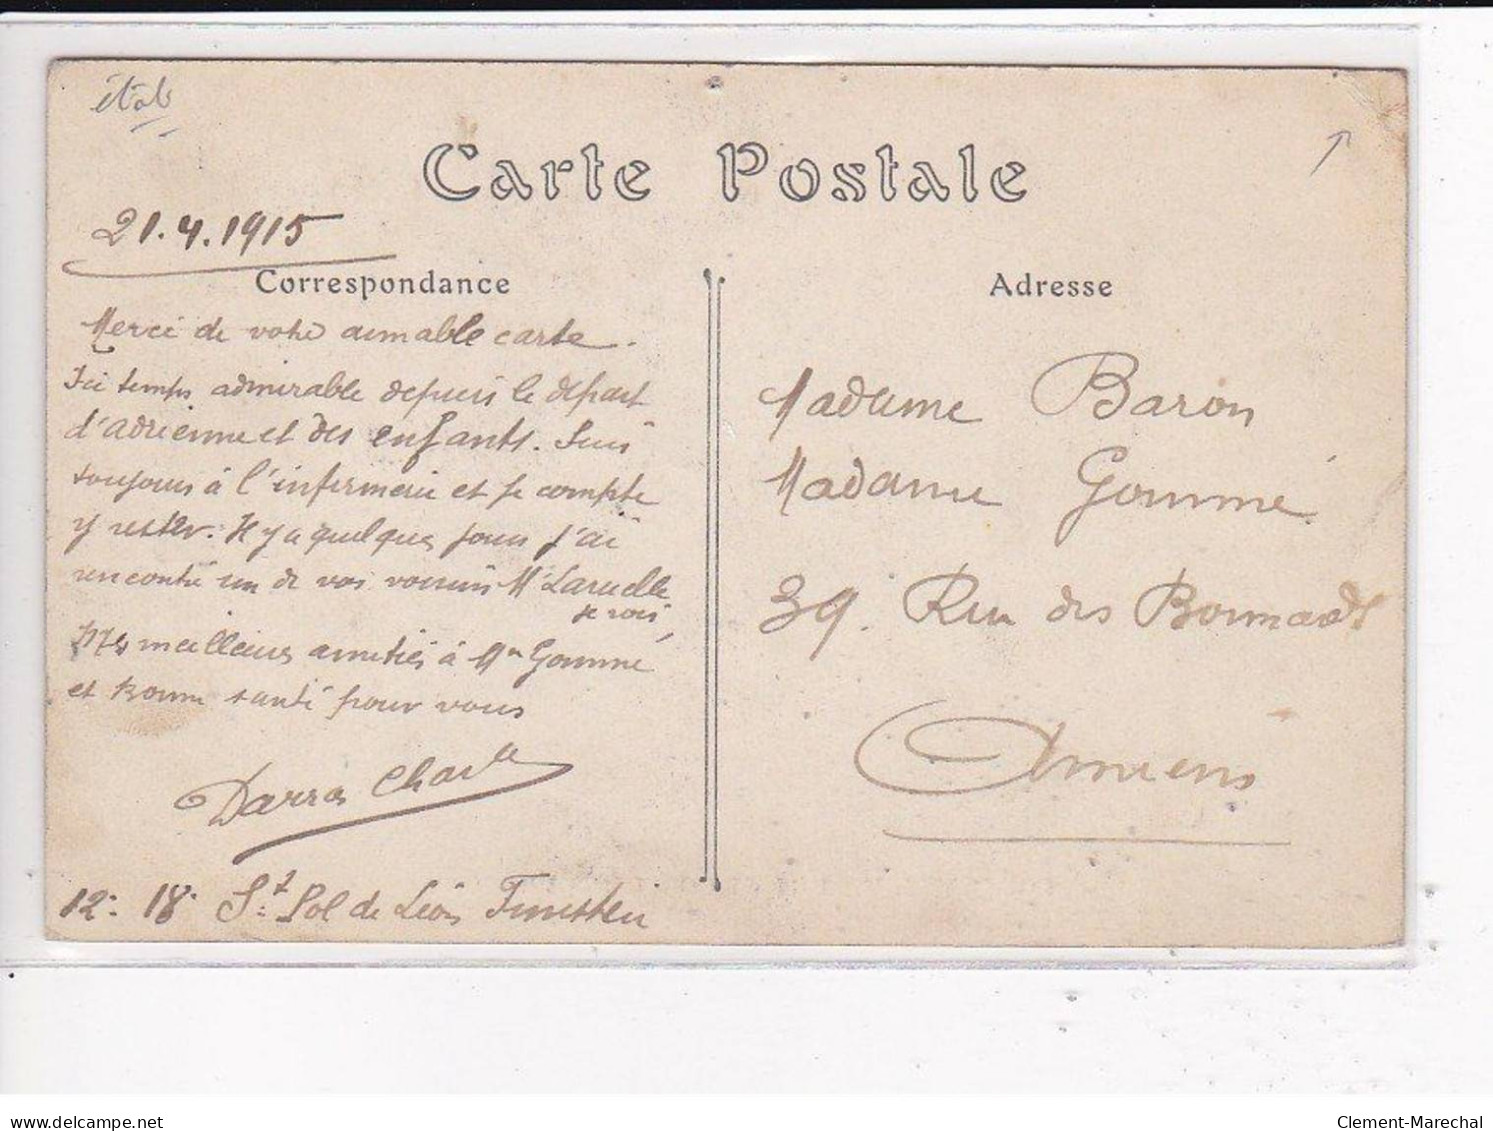 état
Carte Postale
21.4.1915
Correspondance
Merci de votre aimable carte.
Ici temps admirable depuis le départ
d'adrienne et des enfants. Suis
toujours à l'infirmerie et je compte
y rester. Il y a quelques jours j'ai
rencontré un de vos voisins Mr Laruelle
je crois,
Mes meilleures amitiés à Me Gomme
et bonne santé pour vous
Darras Charles
12e 18e St Pol de Léon Finistère
Adresse
Madame Baron
Madame Gomme
39. Rue des Bonnards
Amiens
delcampe.net
Clement-Marechal